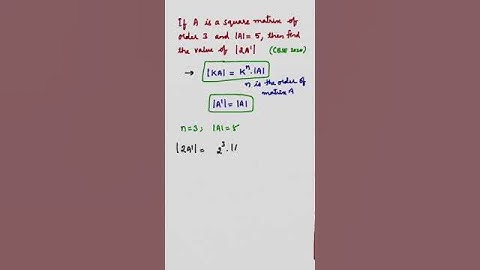 If A is a square matrix of
order 3 and |A| = 5, then find
the value of |2A'| (CBSE 2020)
→ |KA| = Kⁿ·|A|
n is the order of
matrix A
|A'| = |A|
n=3; |A|=5
|2A'| = 2³·|/